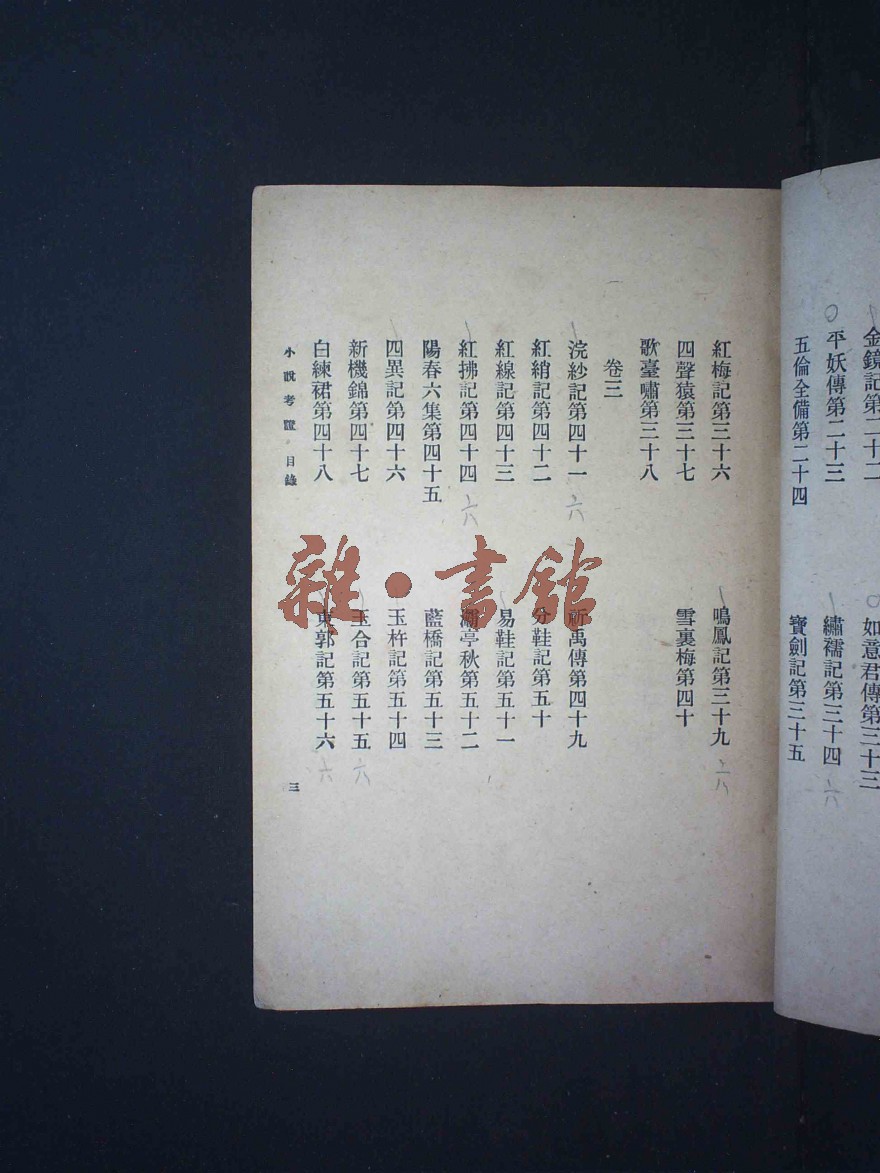 金鏡記第二十二
如意君傳第三十三
平妖傳第二十三
繡襦記第三十四 六
五倫全備第二十四
寶劍記第三十五
紅梅記第三十六
鳴鳳記第三十九 六
四聲猿第三十七
雪裏梅第四十
歌臺嘯第三十八
卷三
浣紗記第四十一 六
祈禹傳第四十九
紅綃記第四十二
分鞋記第五十
紅線記第四十三
易鞋記第五十一
紅拂記第四十四 六
湖亭秋第五十二
陽春六集第四十五
藍橋記第五十三
四異記第四十六
玉杵記第五十四
新機錦第四十七
玉合記第五十五 六
白練裙第四十八
東郭記第五十六 六
小說考覽 目錄
三
雜·書館